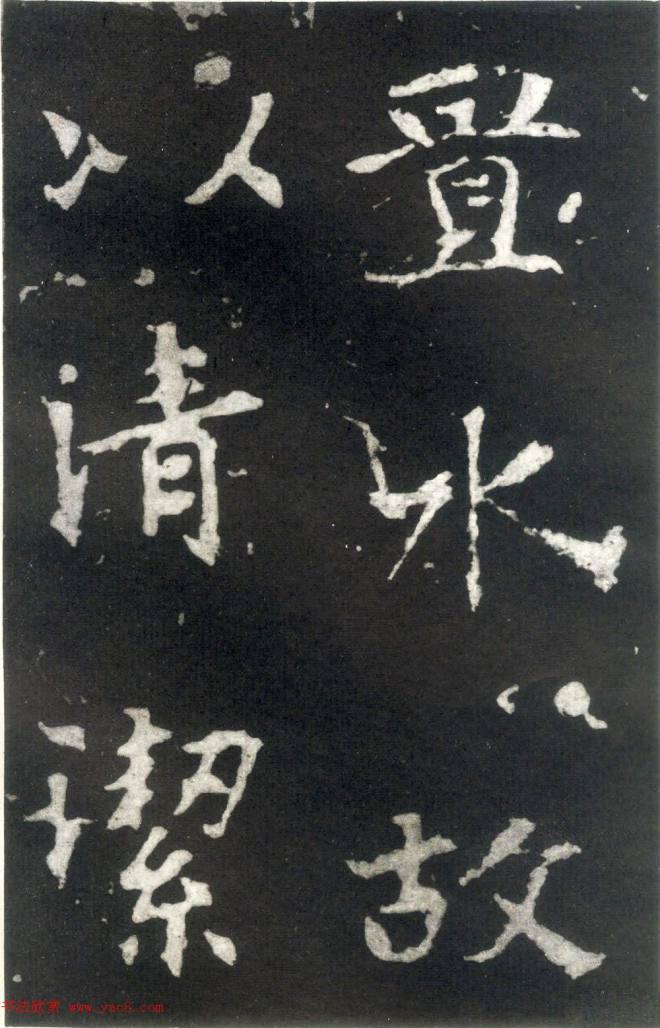 水故
以清潔
书法欣赏 www.yac6.com